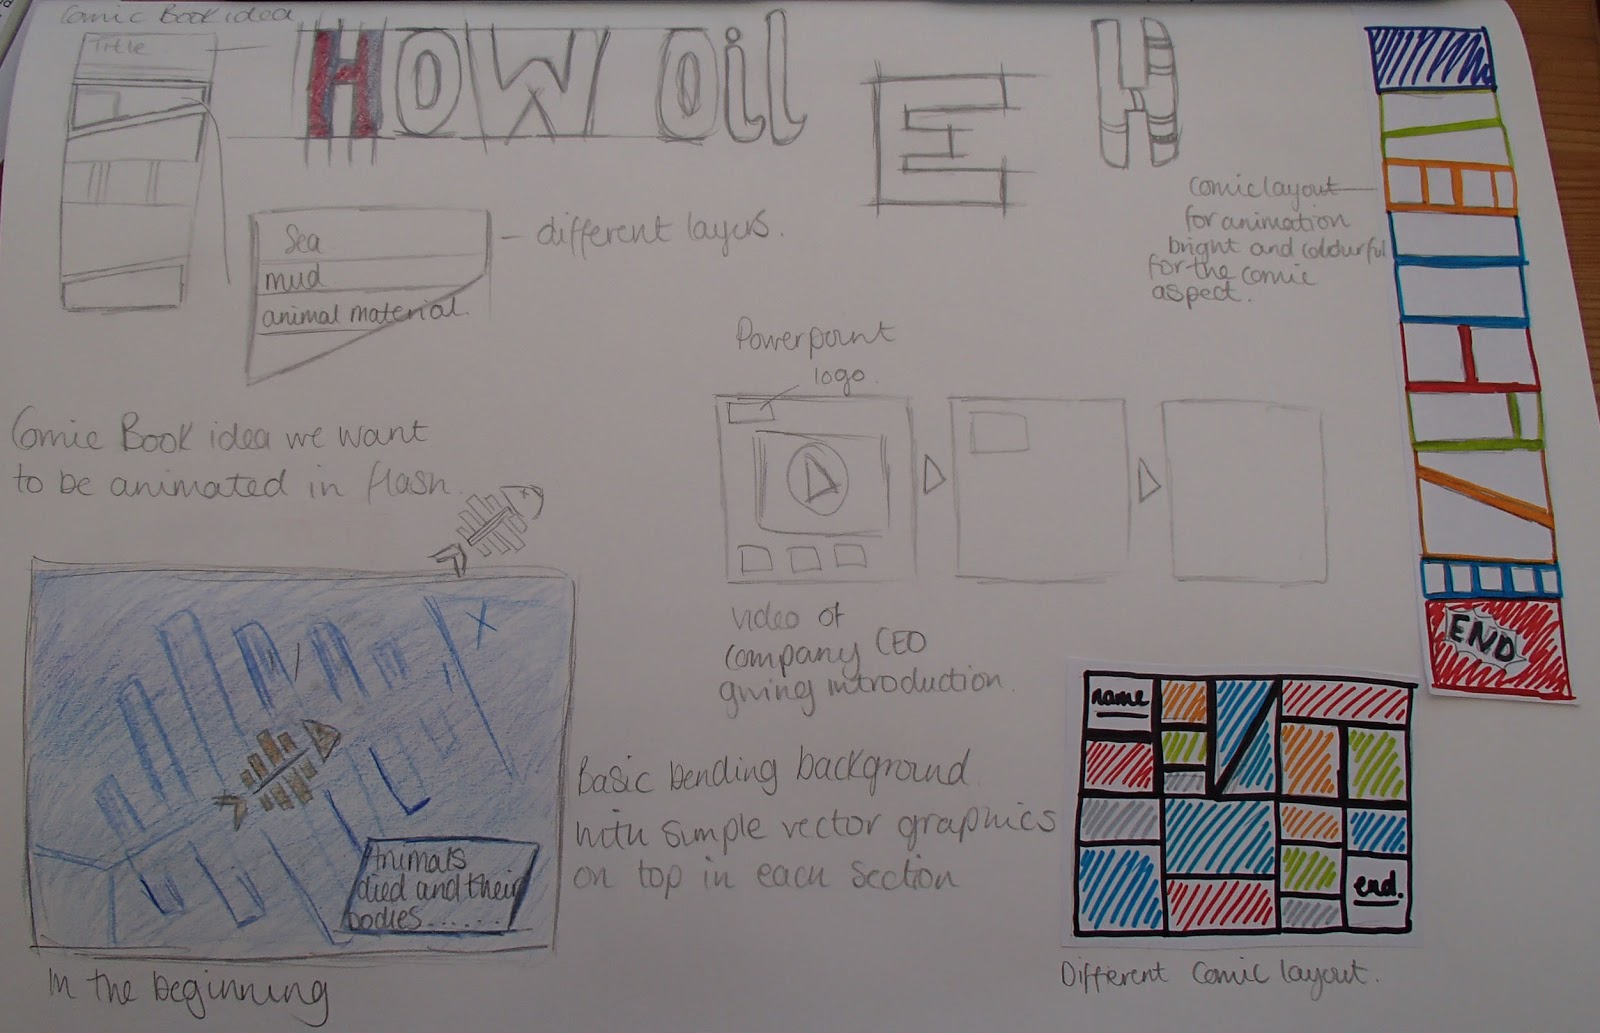 Comic Book idea
Title
HOW Oil
E
H
Sea
mud
animal material.
- different layers.
Comic layout
for animation
bright and colourful
for the comic
aspect.
Powerpoint
logo.
Comic Book idea we want
to be animated in flash.
x
Animals
died and their
bodies......
In the beginning
video of
company CEO
giving introduction.
Basic bending background
with simple vector graphics
on top in each section
END
name
end.
Different Comic layout.